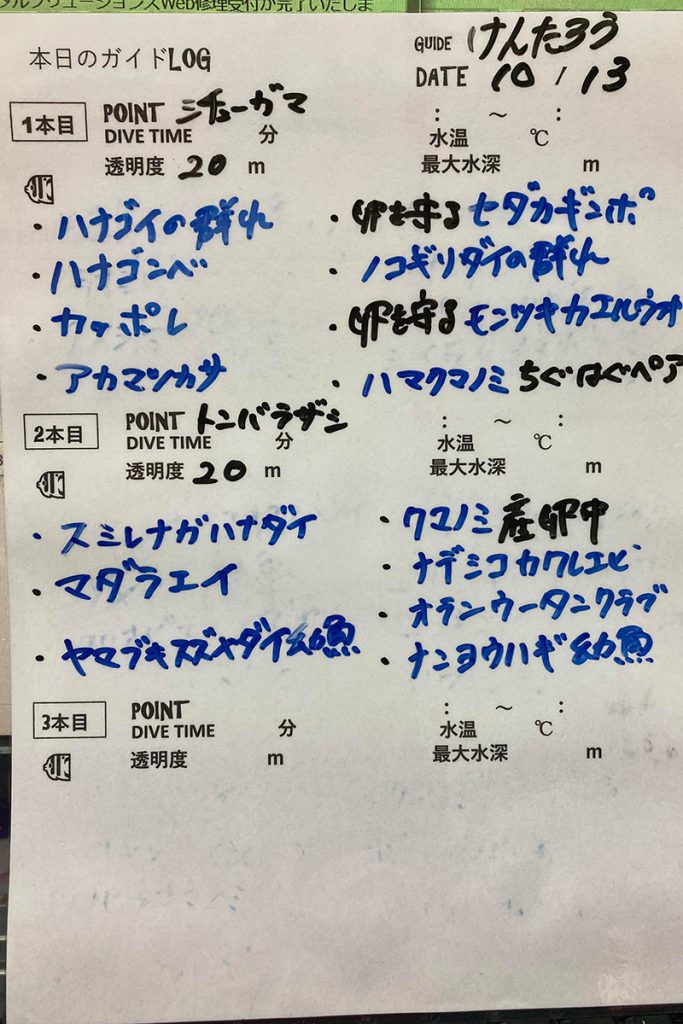 タルソリューションズWeb修理受付が完了いたしま
本日のガイドLOG
GUIDE けんたろう
DATE 10 / 13
1本目
POINT ミチューガマ
DIVE TIME 分
透明度 20 m
: ～ :
水温 ℃
最大水深 m
・ハナゴイの群れ
・ハナゴンベ
・カッポレ
・アカマツカサ
・卵を守るセダカギンポ
・ノコギリダイの群れ
・卵を守るモンツキカエルウオ
・ハマクマノミちぐはぐペア
2本目
POINT トンバラザシ
DIVE TIME 分
透明度 20 m
: ～ :
水温 ℃
最大水深 m
・スミレナガハナダイ
・マダラエイ
・ヤマブキスズメダイ幼魚
・クマノミ産卵中
・ナデシコカクレエビ
・オランウータンクラブ
・ナンヨウハギ幼魚
3本目
POINT
DIVE TIME 分
透明度 m
: ～ :
水温 ℃
最大水深 m